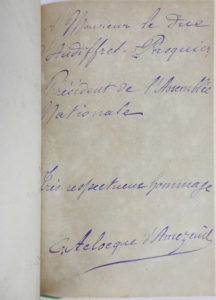 A Monsieur le Duc
Audiffret-Pasquier
Président de l'Assemblée
Nationale
Très respectueux hommage
C. Aclocque d'Amezeuil